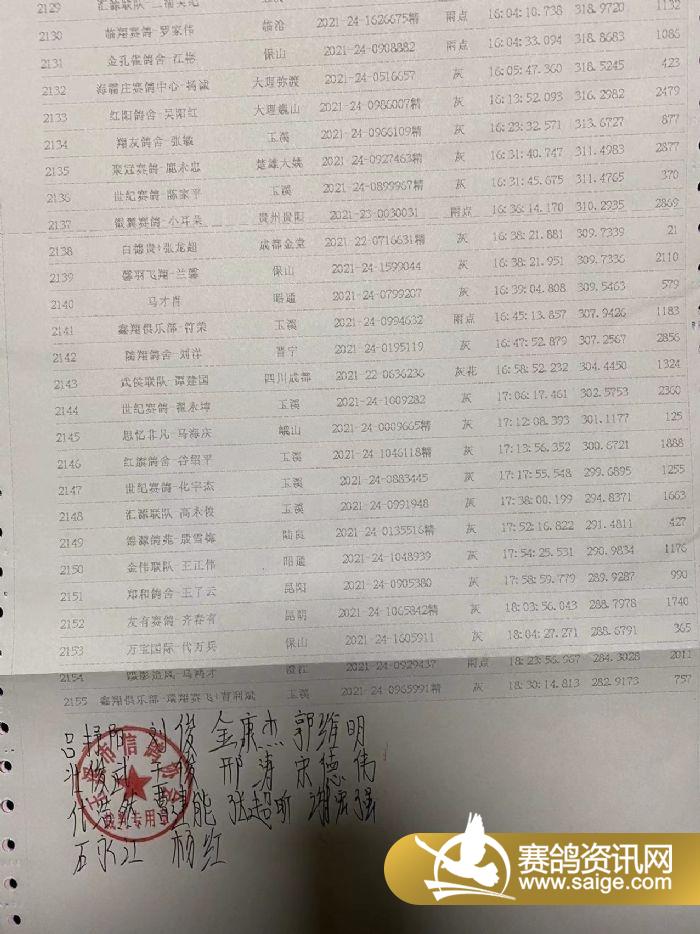 2129 汇源联队
2130 临翔赛鸽-罗家伟 临沧 2021-24-1626675精 雨点 16:04:10.738 318.9720 1132
2131 金孔雀鸽舍-江彬 保山 2021-24-0908882 雨点 16:04:33.094 318.8683 1086
2132 海霸庄赛鸽中心-杨诚 大理弥渡 2021-24-0516657 灰 16:05:47.360 318.5245 423
2133 红阳鸽舍-吴阳红 大理巍山 2021-24-0986007精 灰 16:13:52.093 316.2982 2479
2134 翔友鸽舍-张敏 玉溪 2021-24-0966109精 灰 16:23:32.571 313.6727 877
2135 聚冠赛鸽-鹿永忠 楚雄大姚 2021-24-0927463精 灰 16:31:40.747 311.4983 2877
2136 世纪赛鸽-陈家平 玉溪 2021-24-0899967精 灰 16:31:45.675 311.4765 370
2137 银翼赛鸽-小耳朵 贵州贵阳 2021-23-0030031 雨点 16:36:14.170 310.2935 2869
2138 白德贵+张龙超 成都金堂 2021-22-0716631精 灰 16:38:21.881 309.7339 21
2139 馨羽飞翔-兰馨 保山 2021-24-1599044 灰 16:38:21.951 309.7336 2110
2140 马才肖 昭通 2021-24-0799207 灰 16:39:04.808 309.5463 579
2141 鑫翔俱乐部-符荣 玉溪 2021-24-0994632 雨点 16:45:13.857 307.9426 1183
2142 陵翔鸽舍-刘洋 晋宁 2021-24-0195119 灰 16:47:52.879 307.2567 2856
2143 武侯联队-谭建国 四川成都 2021-22-0636236 灰花 16:58:52.232 304.4450 1324
2144 世纪赛鸽-翟永坤 玉溪 2021-24-1009282 灰 17:06:17.461 302.5753 2360
2145 思忆非凡-马海庆 峨山 2021-24-0009665精 灰 17:12:08.393 301.1177 125
2146 红旗鸽舍-谷绍平 玉溪 2021-24-1046118精 灰 17:13:56.352 300.6721 1888
2147 世纪赛鸽-化宇杰 玉溪 2021-24-0883445 灰 17:17:55.548 299.6895 1255
2148 汇源联队-高永俊 玉溪 2021-24-0991948 灰 17:38:00.199 294.8371 1663
2149 陆良 2021-24-0135516精 灰 17:52:16.822 291.4811 427
2150 金伟联队-王正伟 昭通 2021-24-1048939 灰 17:54:25.531 290.9834 1176
2151 郑和鸽舍-王了云 昆阳 2021-24-0905380 灰 17:58:59.779 289.9287 990
2152 友有赛鸽-齐春有 昆明 2021-24-1065842精 灰 18:03:56.043 288.7978 1740
2153 万宝国际-代万兵 保山 2021-24-1605911 灰 18:04:27.271 288.6791 365
2154 澄江 2021-24-0929437 雨点 18:23:56.967 284.3028 2011
2155 鑫翔俱乐部-瑞翔赛飞+曹利斌 玉溪 2021-24-0965991精 灰 18:30:14.813 282.9173 757
刘俊 金康杰 郭维明
邢涛 宋德伟
谢宏强
石永江 杨红
裁判专用章
赛鸽资讯网
www.saige.com